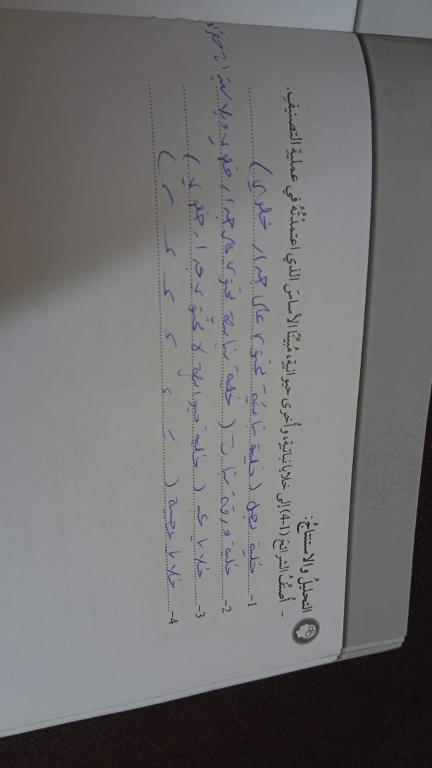 التحليلُ والاستنتاجُ:
- أُصنّفُ الشرائحَ (1-4) إلى خلايا نباتية، وأخرى حيوانية، مُبيّنًا الأساسَ الذي اعتمدْتُهُ في عمليةِ التصنيفِ.
1- خلية بصل (خلية نباتية تحتوي على جدار خلوي)
2- خلية ورقة نبات (خلية نباتية تحتوي على جدار خلوي وبلاستيدات خضراء
3- خلايا (خلية حيوانية لا تحتوي جدار خلوي)
4- خلايا عصبية ( )